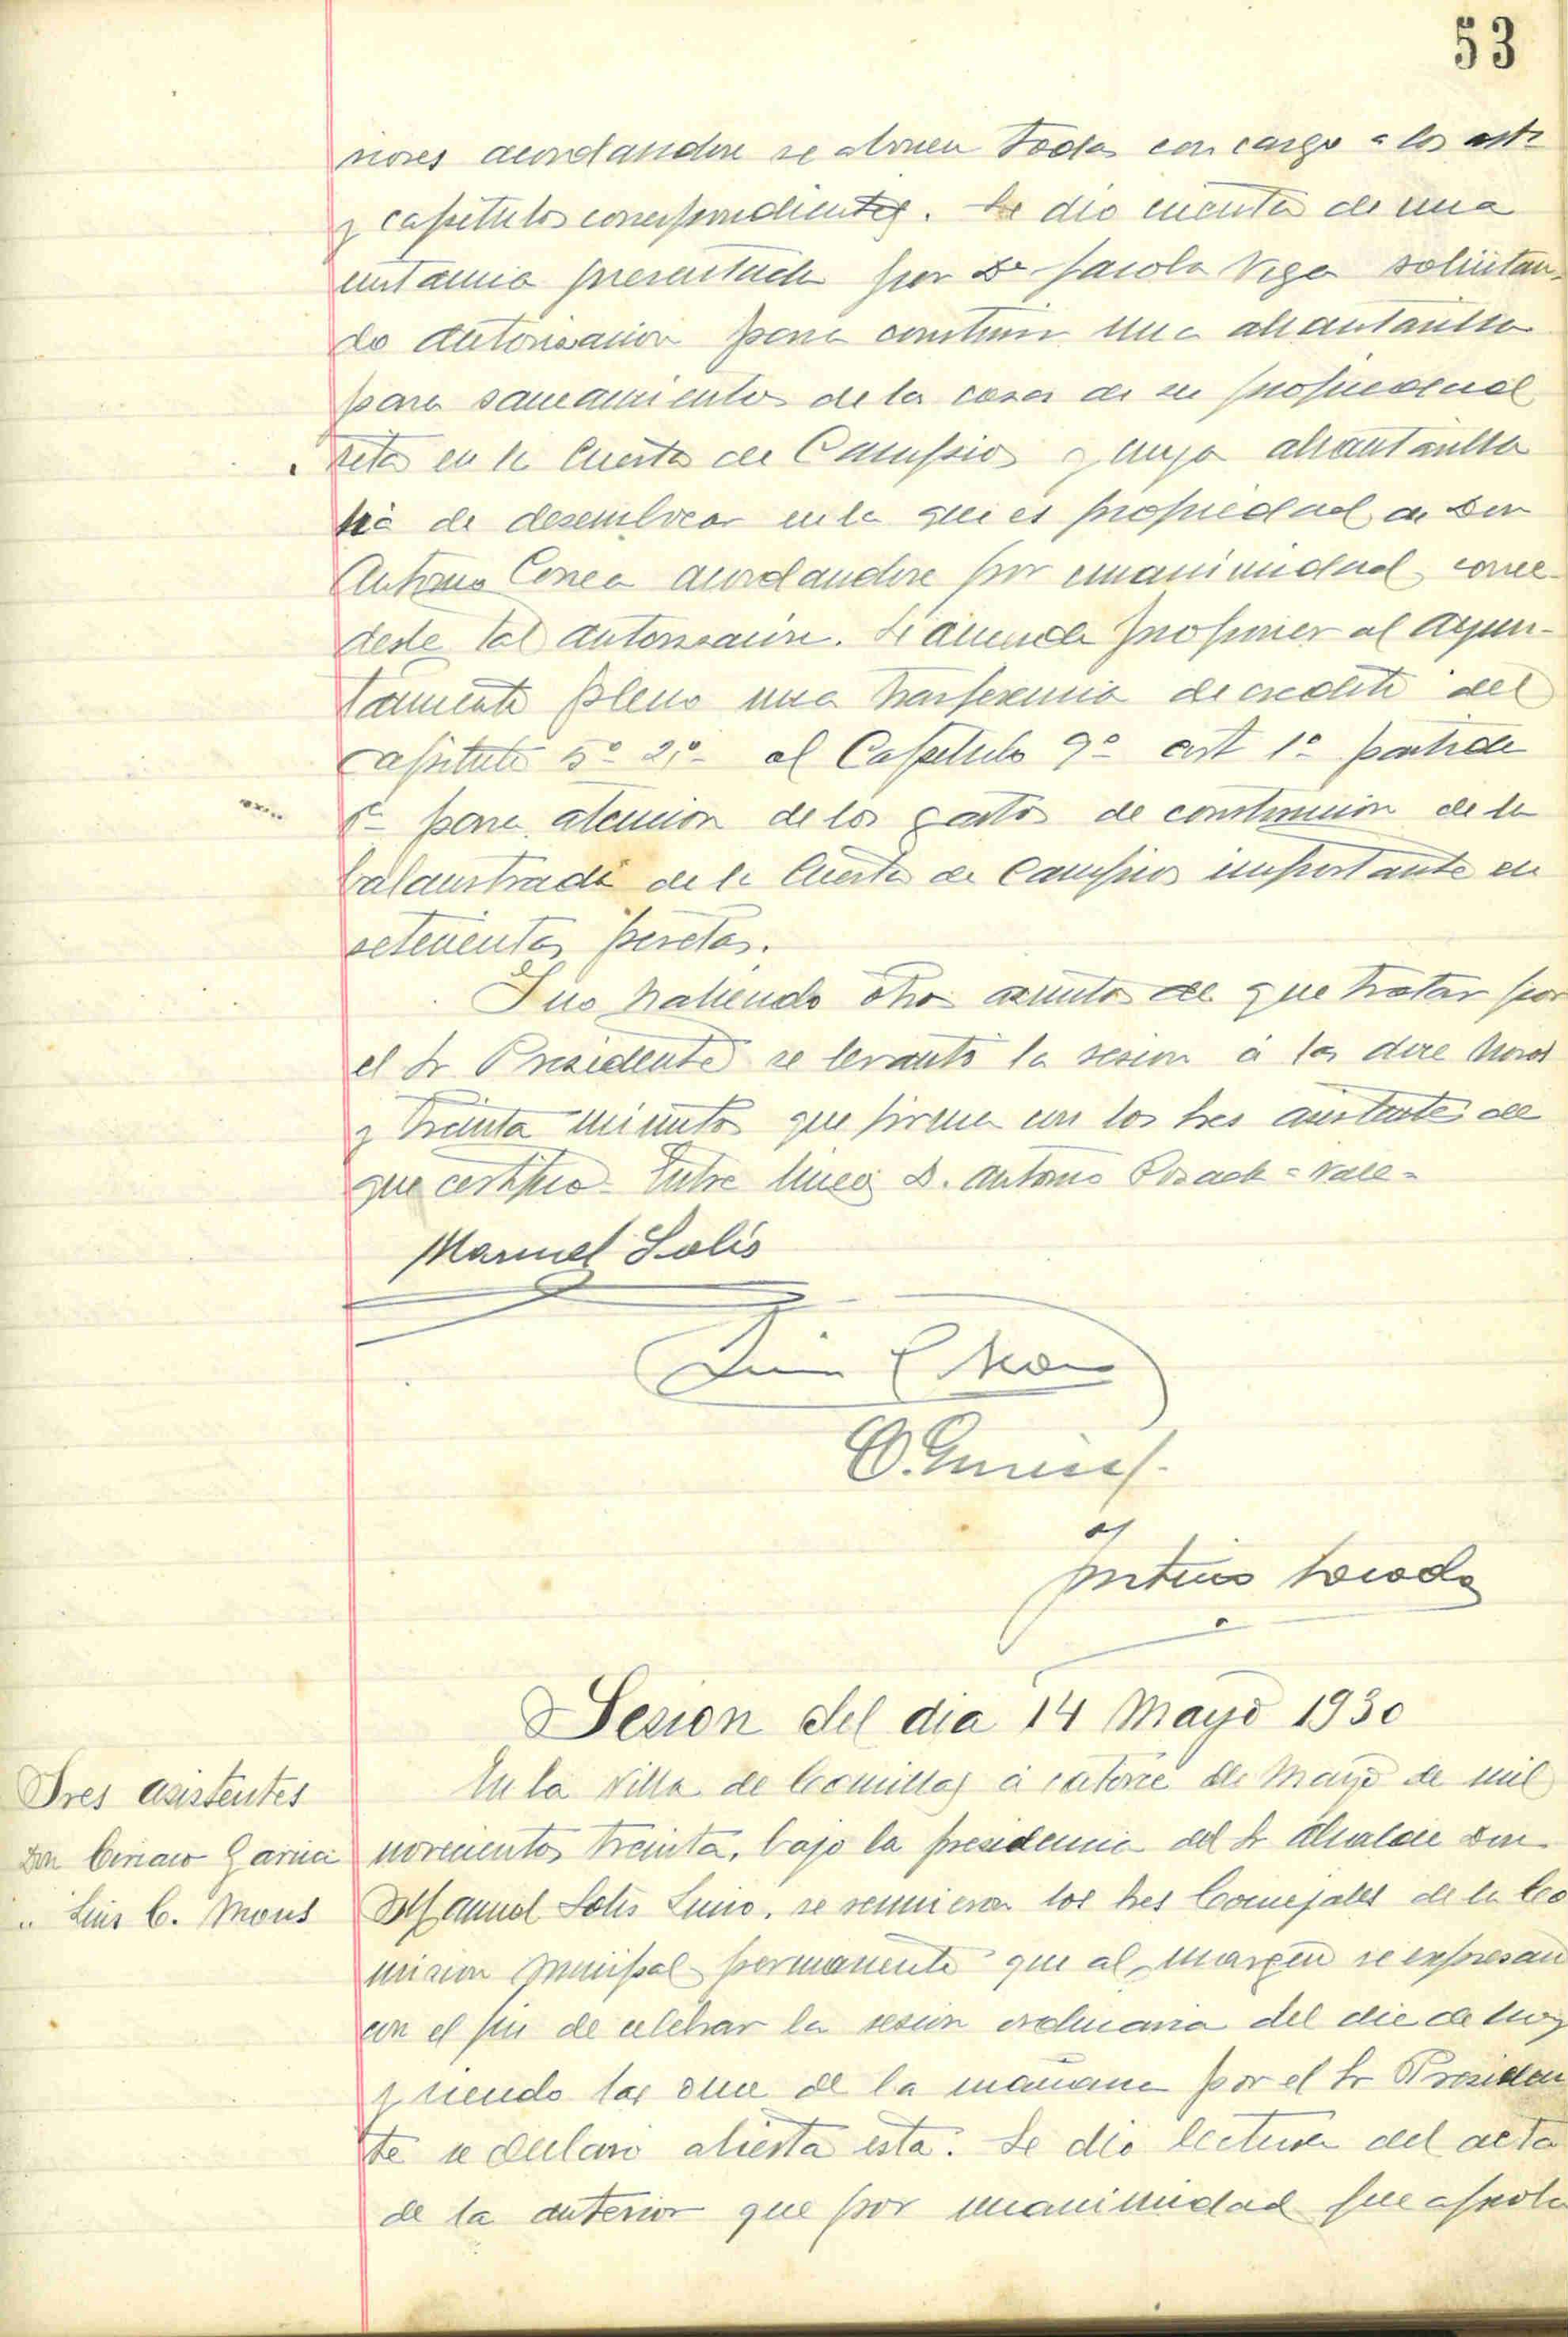 53
riores acordandose se abonen todas con cargo a los artº
y capitulos correspondientes. Se dio cuenta de una
instancia presentada por Dª Jacoba Vega solicitan-
do autorizacion para construir una alcantarilla
para saneamiento de la casa de su propiedad
sita en la Cuesta de Campios y cuya alcantarilla
há de desembocar en la que es propiedad de Don
Antonio Correa acordandose por unanimidad conce-
derle tal autorizacion. Se acuerda proponer al Ayun-
tamiento pleno una trasferencia de credito del
capitulo 5º 2º al Capitulo 9º art 1º partida
para atencion de los gastos de construccion de la
balaustrada de la Cuesta de Campios importante en
setecientas pesetas.
Y no habiendo otros asuntos de que tratar por
el Sr Presidente se levantó la sesion á las doce horas
y treinta minutos que firma con los tres asistentes de
que certifico. Entre lineas D. Antonio Posada = Vale =
Manuel Solís
Antonio Posada
Sesion del dia 14 Mayo 1930
Sres asistentes
Don Ciriaco Garcia
" Luis C. Mons
En la Villa de Comillas á catorce de Mayo de mil
novecientos treinta, bajo la presidencia del Sr Alcalde Don
Manuel Solis, se reunieron los tres Concejales de la Co
mision Municipal permanente que al margen se expresan
con el fin de celebrar la sesion ordinaria del dia de hoy
y siendo las once de la mañana por el Sr Presiden
te se declaró abierta esta. Se dio lectura del acta
de la anterior que por unanimidad fue aproba